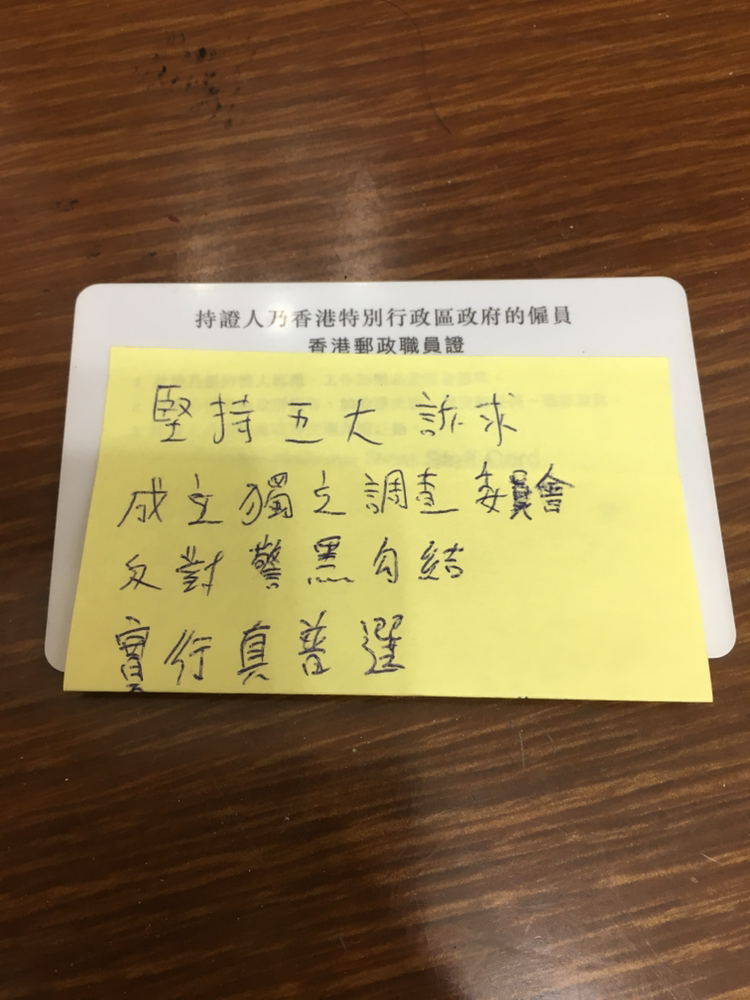 持證人乃香港特別行政區政府的僱員
香港郵政職員證
堅持五大訴求
成立獨立調查委員會
反對警黑勾結
實行真普選